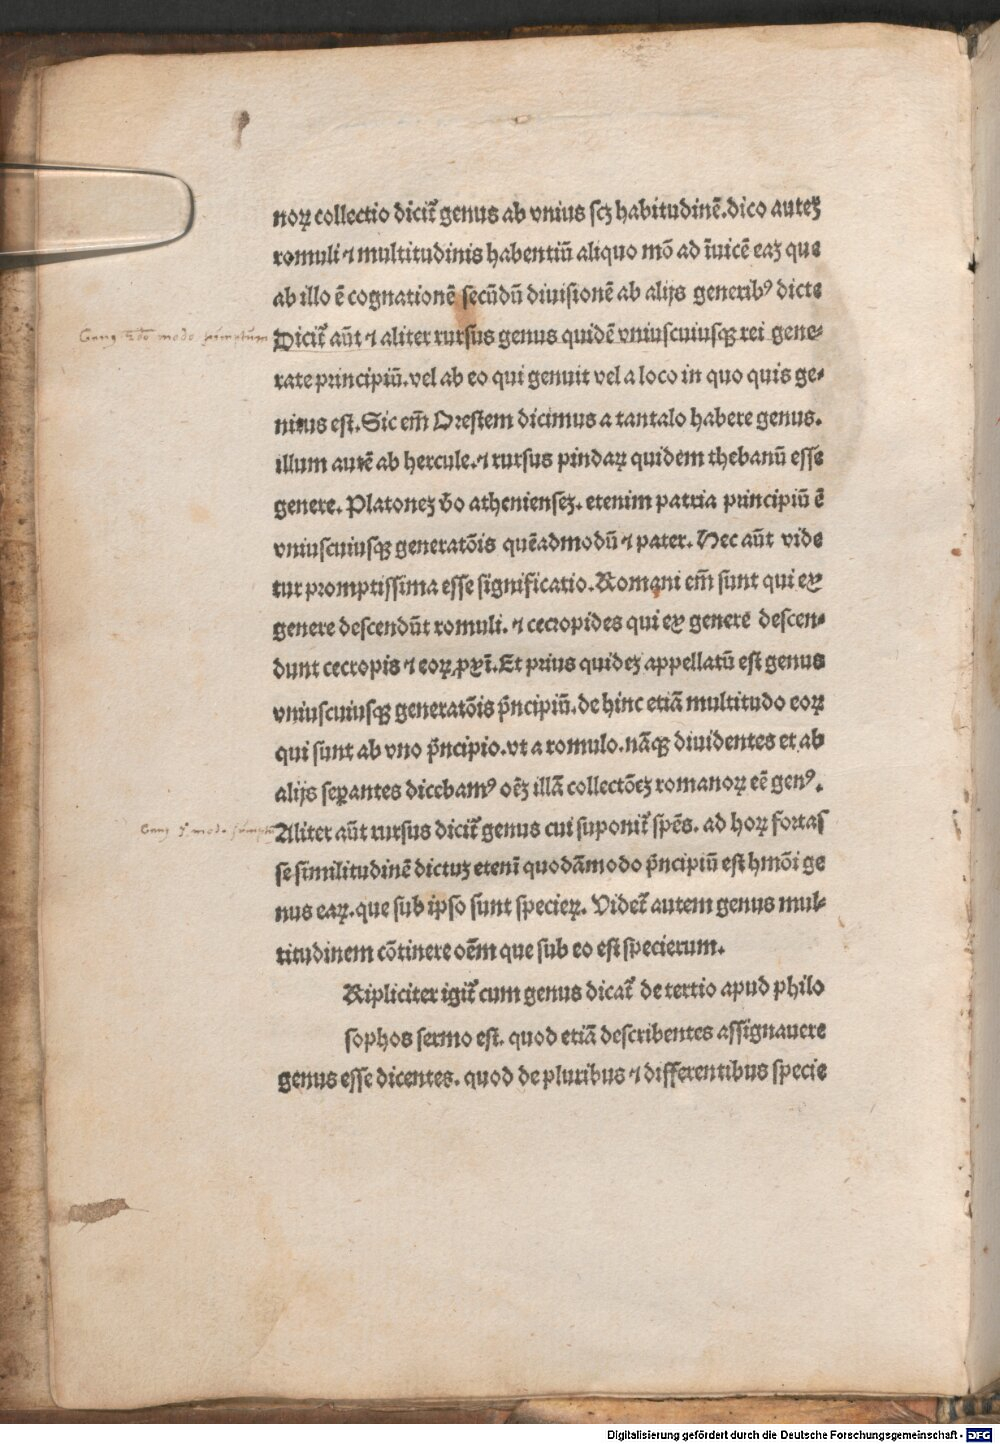 noꝝ collectio dicit᷑ genus ab vnius scꝫ habitudinē. dico auteꝫ
romuli ⁊ multitudinis habentiū aliquo mō ad īuicē eaꝫ que
ab illo ē cognationē secūdū diuisionē ab alijs generibꝰ dicte
Dicit᷑ aūt ⁊ aliter rursus genus quidē vniuscuiusqꝫ rei gene-
rate principiū. vel ab eo qui genuit vel a loco in quo quis ge-
nitus est. Sic em̄ Orestem dicimus a tantalo habere genus.
illum autē ab hercule. ⁊ rursus pindaꝝ quidem thebanū esse
genere. Platoneꝫ v̄o athenienseꝫ. etenim patria principiū ē
vniuscuiusqꝫ generatōis quēadmodū ⁊ pater. Hec aūt vide
tur promptissima esse significatio. Romani em̄ sunt qui ex
genere descendūt romuli. ⁊ cecropides qui ex genere descen-
dunt cecropis ⁊ eoꝝ ꝓxī. Et prius quideꝫ appellatū est genus
vniuscuiusqꝫ generatōis p̄ncipiū. de hinc etiā multitudo eoꝝ
qui sunt ab vno p̄ncipio. vt a romulo. nāqꝫ diuidentes et ab
alijs sepantes dicebamꝰ oēꝫ illā collectōeꝫ romanoꝝ eē genꝰ.
Aliter aūt rursus dicit᷑ genus cui suponit᷑ spēs. ad hoꝝ fortas
se similitudinē dictuꝫ etenī quodāmodo p̄ncipiū est hmōi ge
nus eaꝝ. que sub ipso sunt specieꝝ. Videt᷑ autem genus mul-
titudinem cōtinere oēm que sub eo est specierum.
Ripliciter igit᷑ cum genus dicat᷑ de tertio apud philo
sophos sermo est. quod etiā describentes assignauere
genus esse dicentes. quod de pluribus ⁊ differentibus specie
Genus modo
Genus modo
Digitalisierung gefördert durch die Deutsche Forschungsgemeinschaft - DFG